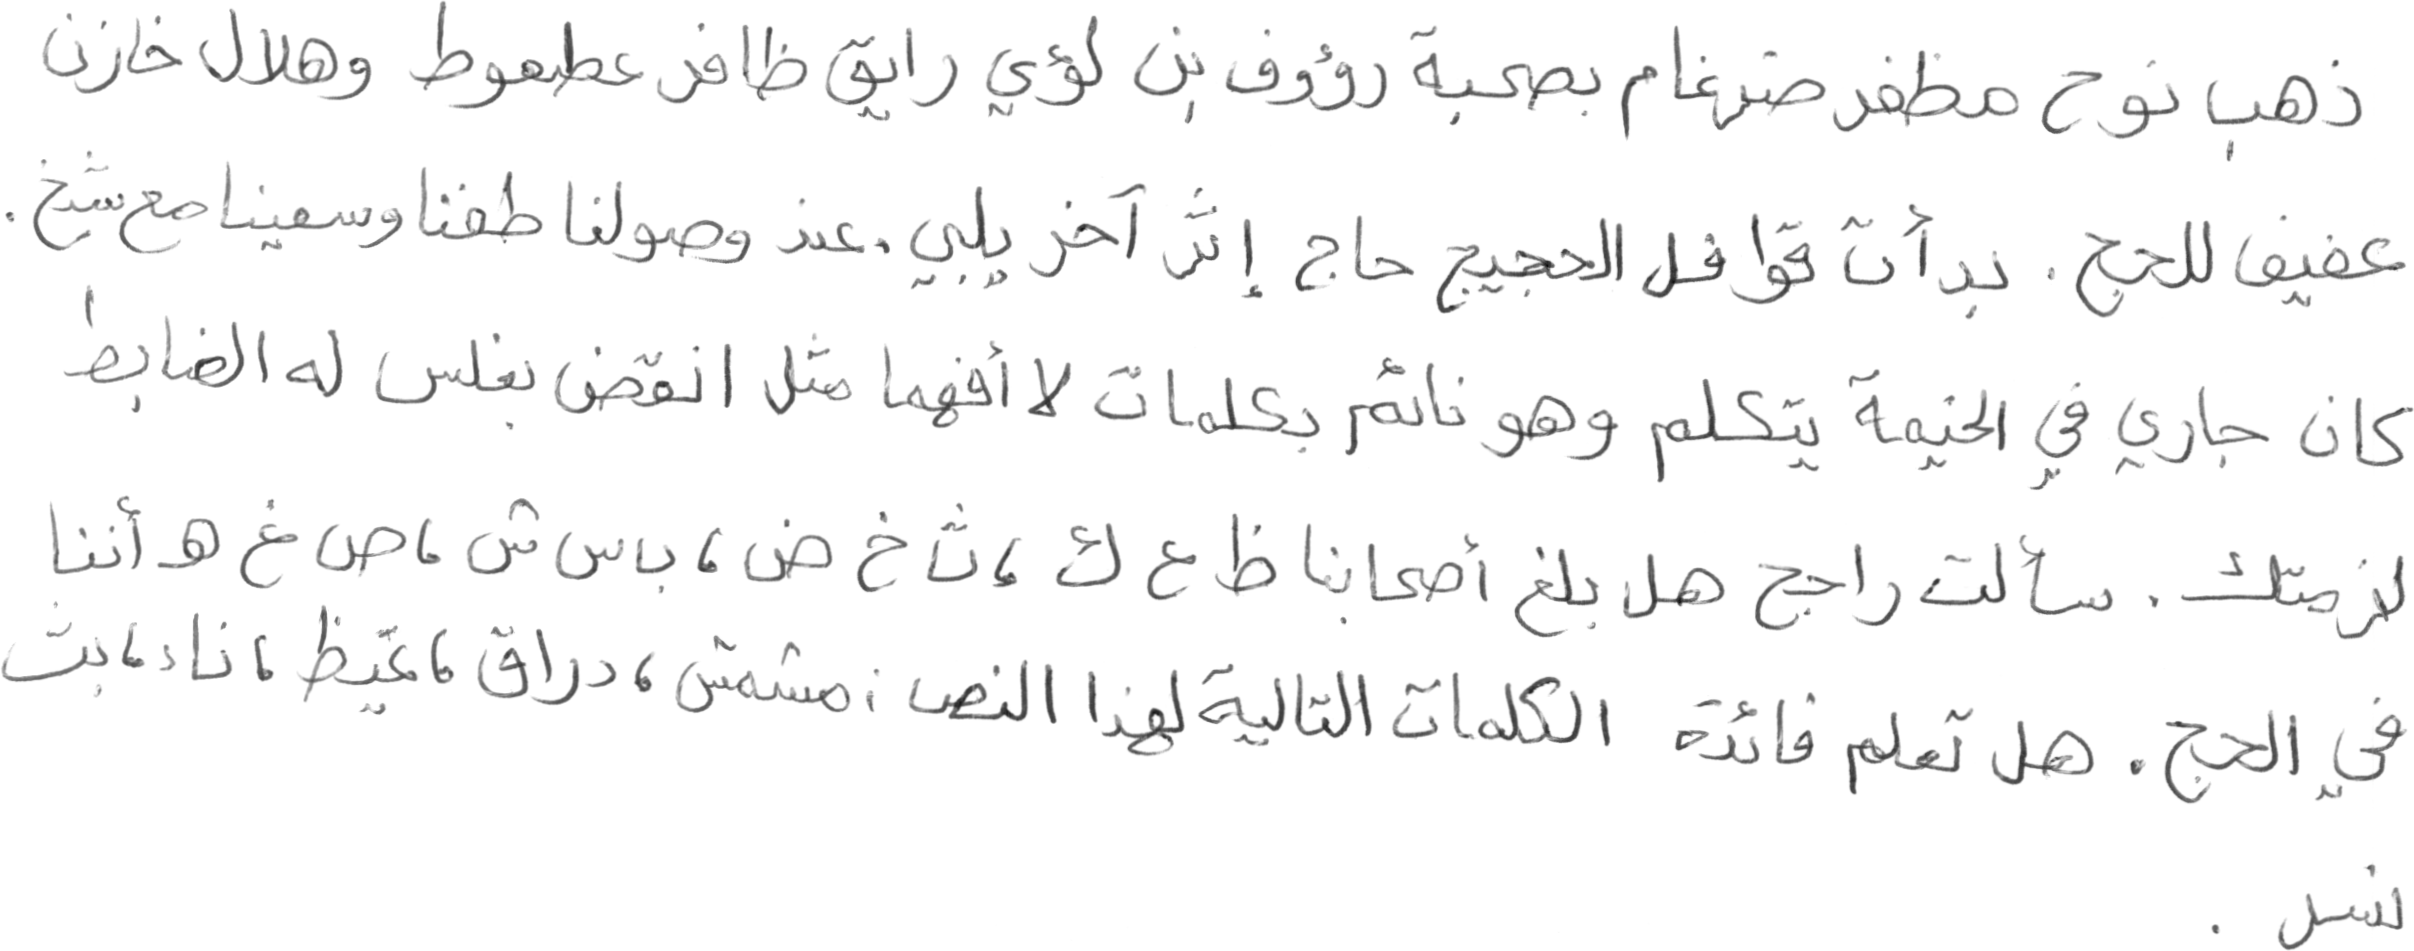 ذهب نوح مظفر ضرغام بصحبة رؤوف بن لؤي رايق ظافر عطعوط وهلال خازن
عفيف للحج . بدأت قوافل الحجيج حاج إثر آخر يلبي . عند وصولنا طفنا وسعينا مع شيخ .
كان جاري في الخيمة يتكلم وهو نائم بكلمات لا أفهما مثل انقض بغلس له الضابط
لزمتك . سألت راجح هل بلغ أصحابنا ظ ع ك ، ث خ ض ، ب س ش ، ص غ هـ أننا
في الحج . هل تعلم فائدة الكلمات التالية لهذا النص : مشمش ، دراق ، غيظ ، ناء ، بث
نسل .